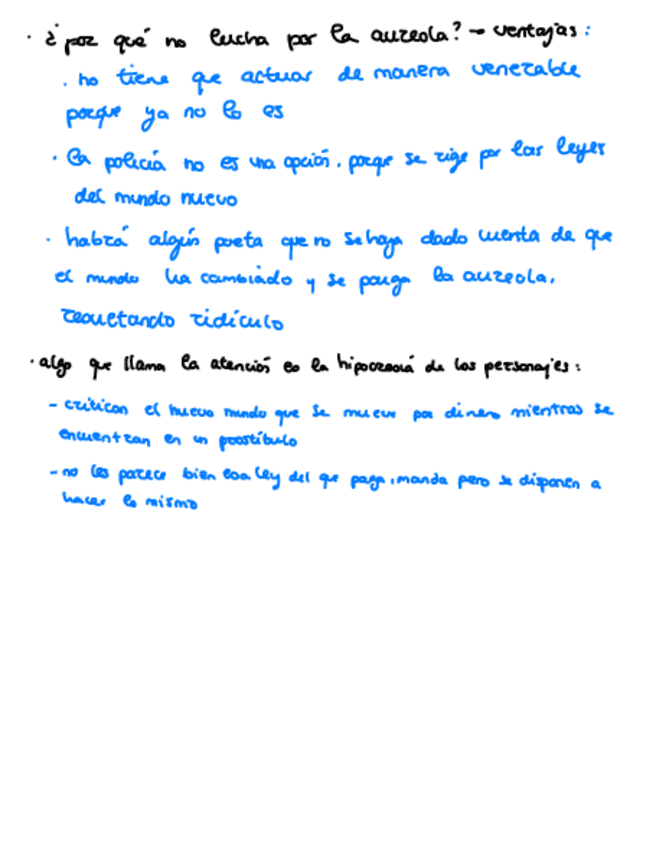 · ¿por qué no lucha por la aureola? → ventajas:
· no tiene que actuar de manera venerable
porque ya no lo es
· la policía no es una opción, porque se rige por las leyes
del mundo nuevo
· habrá algún poeta que no se haya dado cuenta de que
el mundo ha cambiado y se ponga la aureola,
resultando ridículo
· algo que llama la atención es la hipocresía de los personajes:
- critican el nuevo mundo que se mueve por dinero mientras se
encuentran en un prostíbulo
- no les parece bien esa ley del que paga, manda pero se disponen a
hacer lo mismo